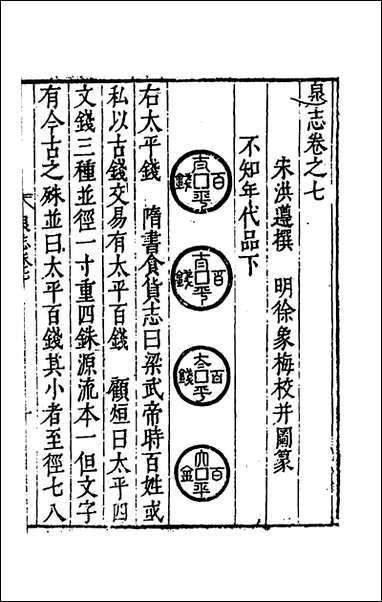 泉志卷之七
宋洪遵撰　明徐象梅校并圖篆
不知年代品下
百
錢
平
百
錢
平
百
錢
平
百
金
平
右太平錢　隋書食貨志曰梁武帝時百姓或
私以古錢交易有太平百錢　顧烜曰太平四
文錢三種並徑一寸重四銖源流本一但文字
有今古之殊並曰太平百錢其小者至徑七八